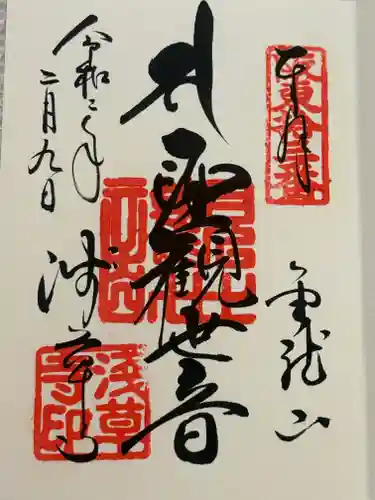 奉拝
坂東拾三番
金龍山
聖観世音
浅草寺
浅草寺印
令和二年
二月九日